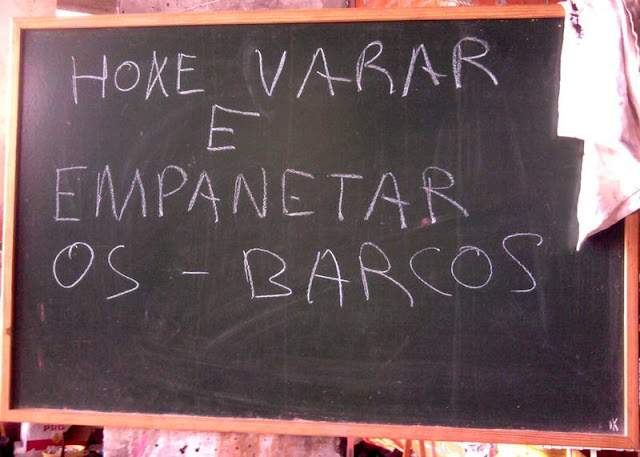 HOXE VARAR
E
EMPANETAR
OS - BARCOS